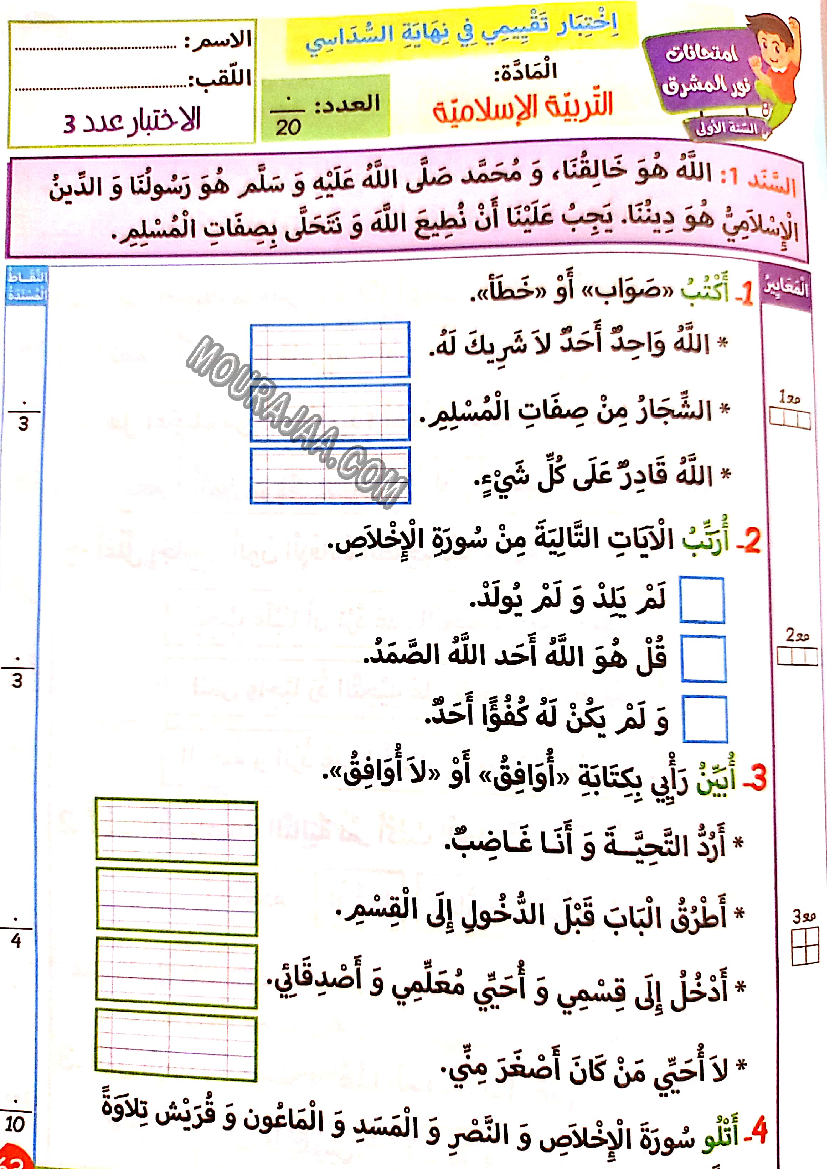 امتحانات
نور المشرق
السّنة الأولى
اِخْتِبَار تَقْيِيمي فِي نِهَايَةِ السُّدَاسِي
الْمَادَّة:
التّربيّة الإسلاميّة
العدد: 20
الاسم:
اللّقب:
الاختبار عدد 3
السَّنَد 1: اللَّهُ هُوَ خَالِقُنَا، وَ مُحَمَّد صَلَّى اللَّهُ عَلَيْهِ وَ سَلَّم هُوَ رَسُولُنَا وَ الدِّينُ
الْإِسْلَامِيُّ هُوَ دِينُنَا. يَجِبُ عَلَيْنَا أَنْ نُطِيعَ اللَّهَ وَ نَتَحَلَّى بِصِفَاتِ الْمُسْلِمِ.
الْمَعَايِيرُ
النّقاط
المُسْنَدَة
1- أَكْتُبُ «صَوَاب» أَوْ «خَطَأ».
* اللَّهُ وَاحِدٌ أَحَدٌ لَا شَرِيكَ لَهُ.
مع1
* الشِّجَارُ مِنْ صِفَاتِ الْمُسْلِمِ.
3
* اللَّهُ قَادِرٌ عَلَى كُلِّ شَيْءٍ.
MOURAJAA.COM
2- أُرَتِّبُ الْآيَاتِ التَّالِيَةَ مِنْ سُورَةِ الْإِخْلَاصِ.
لَمْ يَلِدْ وَ لَمْ يُولَدْ.
مع2
قُلْ هُوَ اللَّهُ أَحَد اللَّهُ الصَّمَدُ.
3
وَ لَمْ يَكُنْ لَهُ كُفُؤًا أَحَدٌ.
3- أُبَيِّنُ رَأْيِي بِكِتَابَةِ «أُوَافِقُ» أَوْ «لَا أُوَافِقُ».
* أَرُدُّ التَّحِيَّــةَ وَ أَنَـا غَـاضِبٌ.
* أَطْرُقُ الْبَابَ قَبْلَ الدُّخُولِ إِلَى الْقِسْمِ.
مع3
4
* أَدْخُلُ إِلَى قِسْمِي وَ أُحَيِّي مُعَلِّمِي وَ أَصْدِقَائِي.
* لَا أُحَيِّي مَنْ كَانَ أَصْغَرَ مِنِّي.
4- أَتْلُو سُورَةَ الْإِخْلَاصِ وَ النَّصْرِ وَ الْمَسَدِ وَ الْمَاعُون وَ قُرَيْش تِلَاوَةً
10